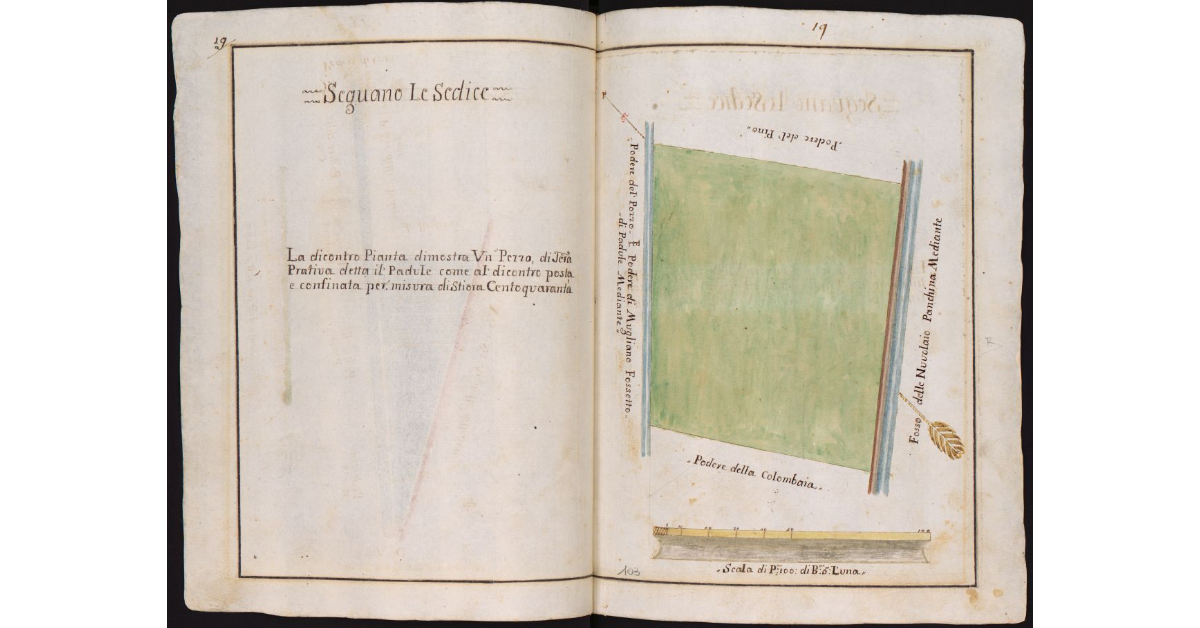 19
Seguano Le Sedice
La dicontro Pianta dimostra Vn Pezzo, di Terᵃ
Prativa detta il Padule come al dicontro posta
e confinata per misura di Stiora Centoquaranta
19
Podere del Pino.
Podere del Pozzo. E Podere di Mugliano Fossetto.
di Padule Mediante
Fosso delle Nuvolaio Panchina Mediante
Podere della Colombaia.
Scala di P: 100: di B: 5: Luna.
103